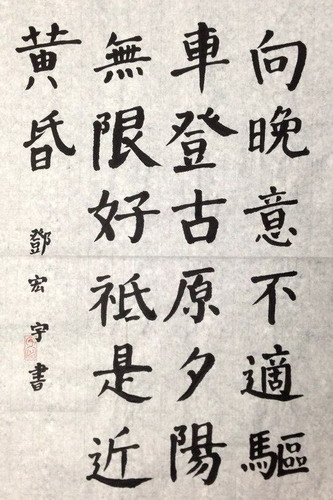 向晚意不適驅
車登古原夕陽
無限好祗是近
黄昏
鄧宏宇書